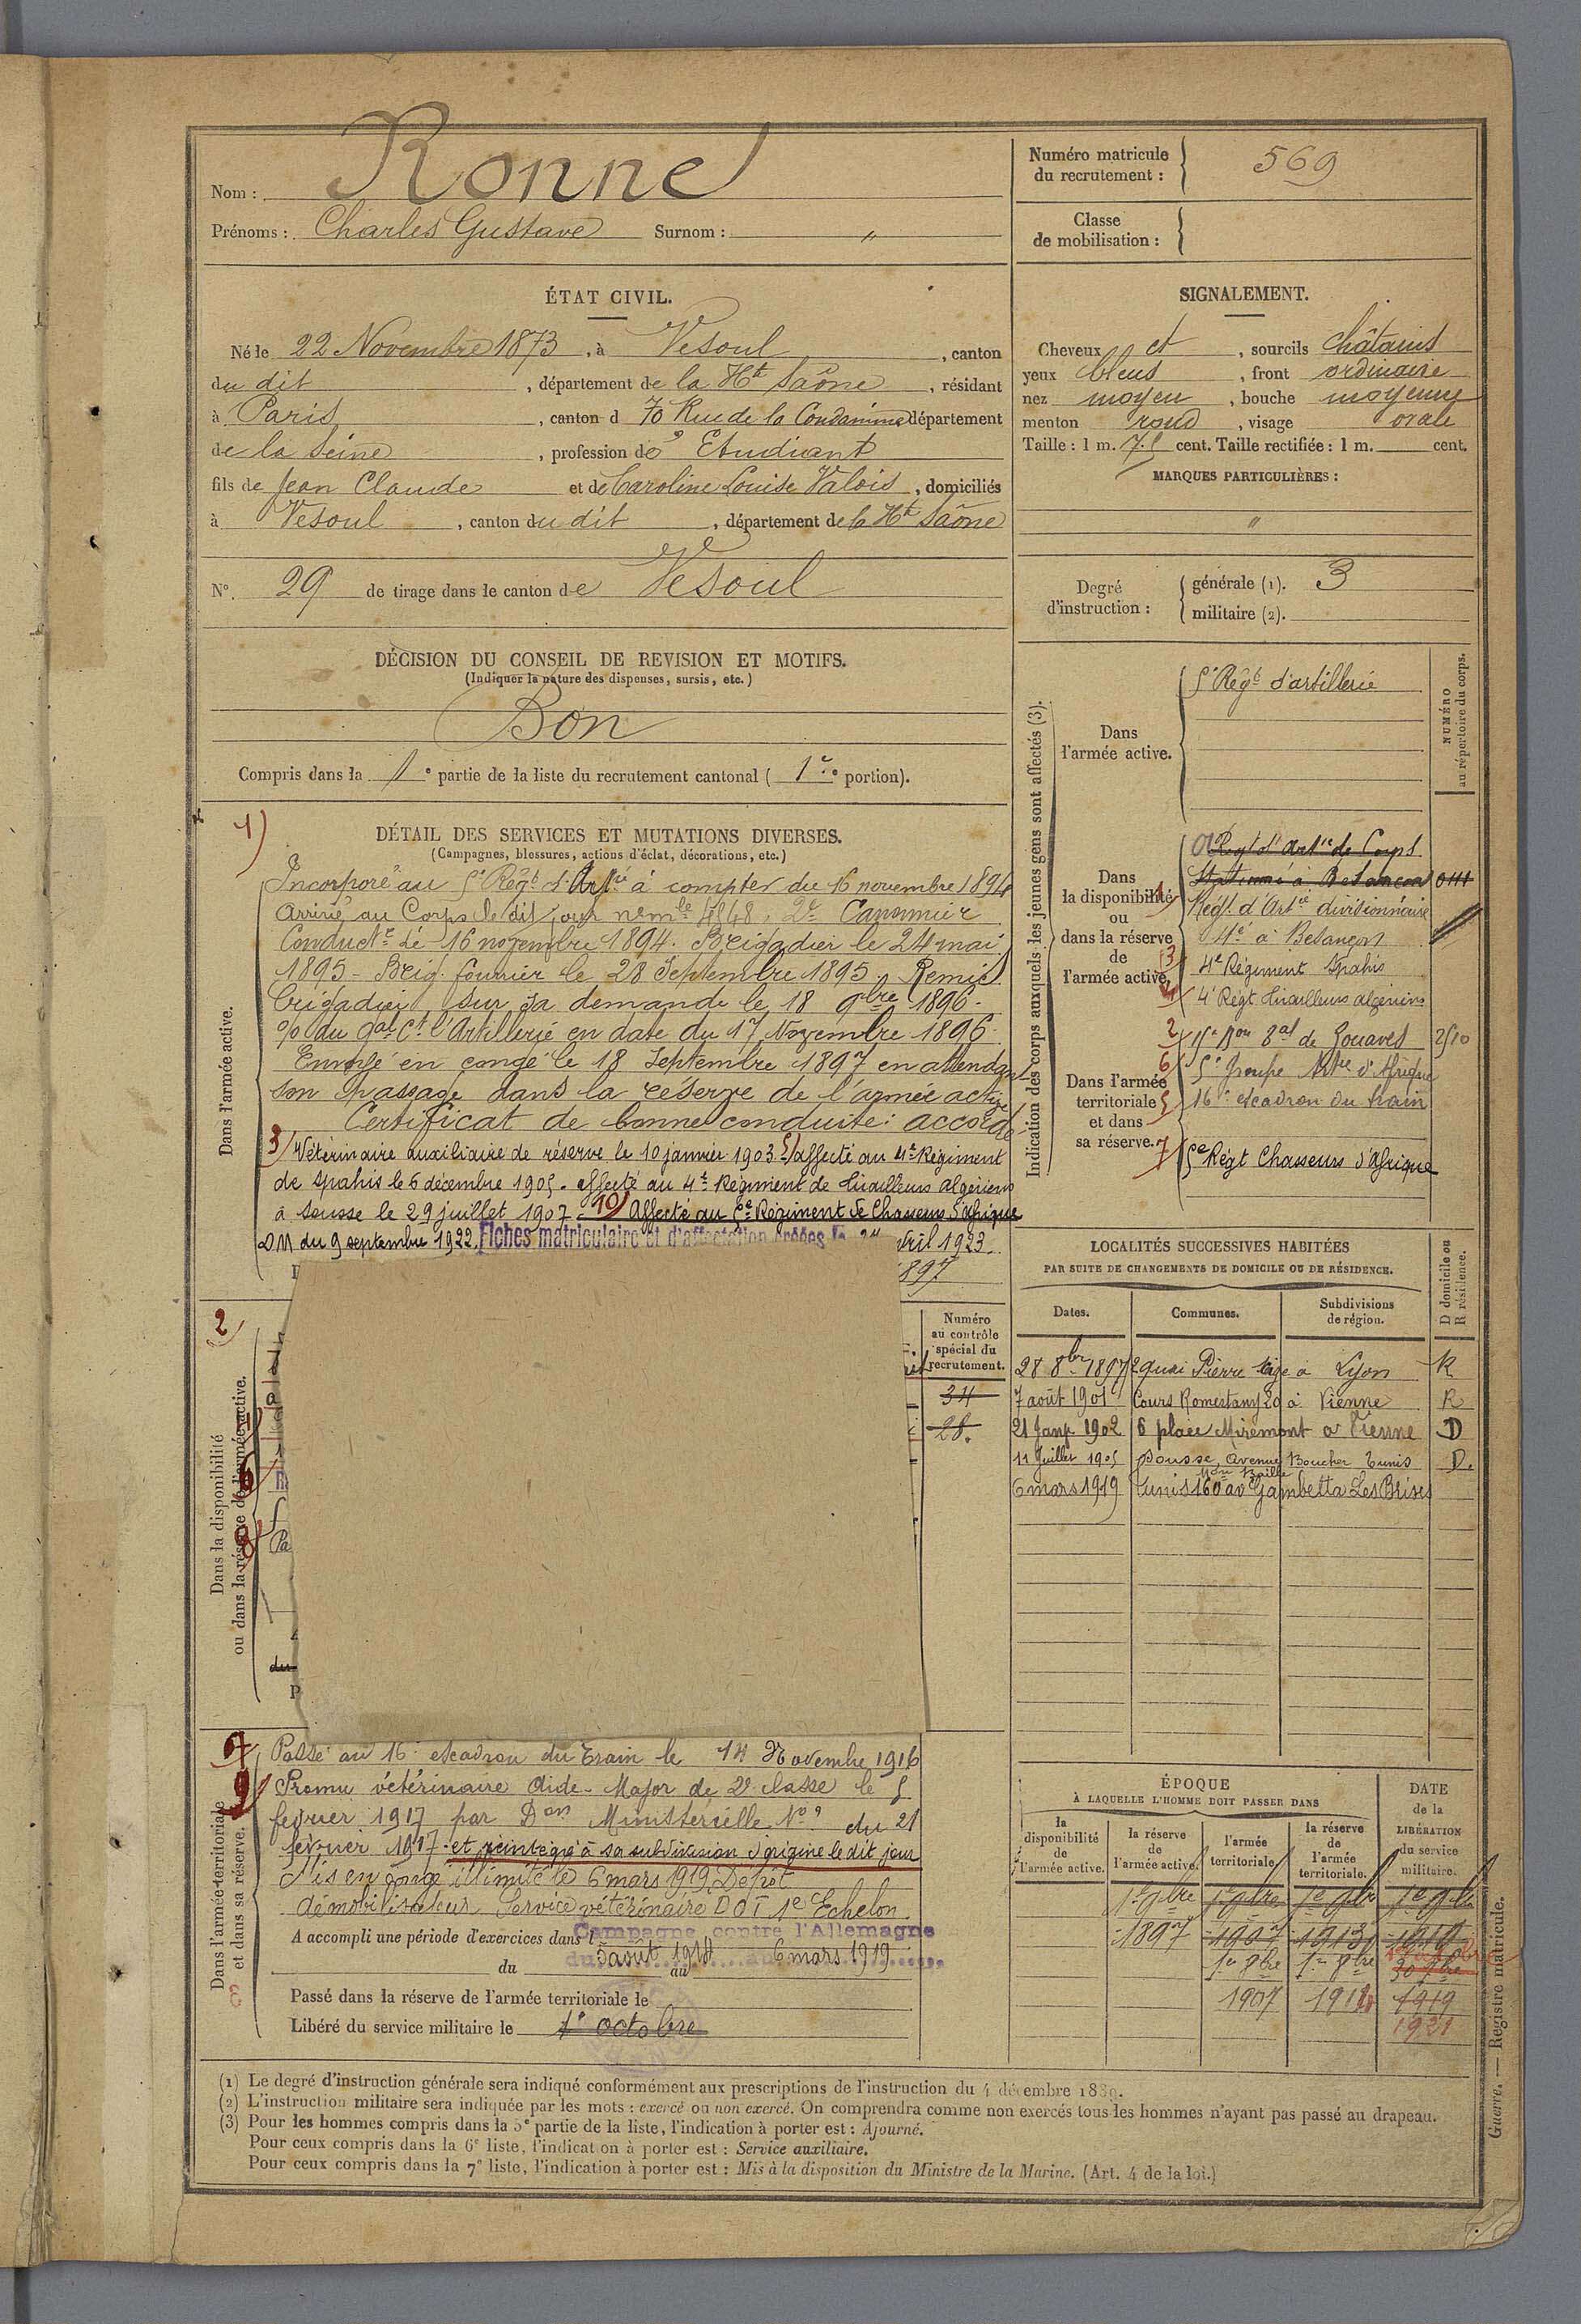 Nom : Ronne
Prénoms : Charles Gustave Surnom : "
Numéro matricule du recrutement : 569
Classe de mobilisation :
ÉTAT CIVIL.
Né le 22 Novembre 1873, à Vesoul, canton
du dit, département de la Hte Saône, résidant
à Paris, canton d 70 Rue de la Condamine département
de la Seine, profession de Etudiant
fils de Jean Claude et de Caroline Louise Valois, domiciliés
à Vesoul, canton du dit, département de la Hte Saône
N° 29 de tirage dans le canton de Vesoul
SIGNALEMENT.
Cheveux et, sourcils châtains
yeux bleus, front ordinaire
nez moyen, bouche moyenne
menton rond, visage ovale
Taille : 1 m. 75 cent. Taille rectifiée : 1 m. cent.
MARQUES PARTICULIÈRES :
"
Degré d'instruction : générale (1). 3
militaire (2).
DÉCISION DU CONSEIL DE REVISION ET MOTIFS.
(Indiquer la nature des dispenses, sursis, etc.)
Bon
Compris dans la 1e partie de la liste du recrutement cantonal ( 1re portion).
1)
DÉTAIL DES SERVICES ET MUTATIONS DIVERSES.
(Campagnes, blessures, actions d'éclat, décorations, etc.)
Dans l'armée active.
Incorporé au 5e Régt d'Artie à compter du 16 novembre 1894
Arrivé au Corps le dit jour, 2e Canonnier
Conductr le 16 novembre 1894. Brigadier le 24 mai
1895 - Brig. fourrier le 28 Septembre 1895. Remis
brigadier sur sa demande le 18 9bre 1896.
% du Gal Ct l'Artillerie en date du 17 Novembre 1896.
Envoyé en congé le 18 Septembre 1897 en attendant
son passage dans la réserve de l'armée active
Certificat de bonne conduite : accordé
3) Vétérinaire auxiliaire de réserve le 10 janvier 1903. 5) affecté au 4e Régiment
de Spahis le 6 décembre 1905. affecté au 4e Régiment de tirailleurs algériens
à Sousse le 29 juillet 1907 - 10) Affecté au 5e Régiment de Chasseurs d'Afrique
DM du 9 septembre 1922. Fiches matriculaire et d'affectation créées le avril 1923.
1897
Indication des corps auxquels les jeunes gens sont affectés (3).
NUMÉRO au répertoire du corps.
Dans l'armée active.
5e Régt d'artillerie
Dans la disponibilité ou dans la réserve de l'armée active.
Régt d'Artie de Corps
stationné à Besançon
Régt. d'Artie divisionnaire
4e à Besançon
4e Régiment Spahis
4e Régt tirailleurs algériens
Dans l'armée territoriale et dans sa réserve.
Bal de Zouaves 2510
6 5e Groupe Artie d'Afrique
5 16e escadron du train
7 5e Régt Chasseurs d'Afrique
LOCALITÉS SUCCESSIVES HABITÉES
PAR SUITE DE CHANGEMENTS DE DOMICILE OU DE RÉSIDENCE.
Dates. Communes. Subdivisions de région. D domicile ou R résidence.
28 8bre 1897 2 quai Pierre Scize à Lyon R
7 août 1901 Cours Romestang 20 à Vienne R
21 Janv 1902 6 place Miremont à Vienne D
11 Juillet 1905 Sousse, Avenue Boucher Tunis D.
6 mars 1919 Tunis 160 av Gambetta Les Brises
2
Dans la disponibilité ou dans la réserve de l'armée active.
Numéro au contrôle spécial du recrutement.
34
28.
Dans l'armée territoriale et dans sa réserve.
Passé au 16e escadron du Train le 14 Novembre 1916
9) Promu vétérinaire Aide-Major de 2e classe le 5
février 1917 par Don Ministérielle No 9 du 21
février 1917. et réintégré à sa subdivision d'origine le dit jour
Mis en congé illimité le 6 mars 1919. Dépôt
démobilisateur Service vétérinaire DOT 1e Echelon
A accompli une période d'exercices dans l
Campagne contre l'Allemagne
du 5 août 1914 au 6 mars 1919
Passé dans la réserve de l'armée territoriale le
Libéré du service militaire le 1e octobre
ÉPOQUE
À LAQUELLE L'HOMME DOIT PASSER DANS
la disponibilité de l'armée active. la réserve de l'armée active. l'armée territoriale. la réserve de l'armée territoriale.
DATE de la LIBÉRATION du service militaire.
1e 9bre 1e 9bre 1e 9bre 1e 9bre
1897 1907 1913 1919
1er 8bre 1er 8bre 30 7bre
1907 1919
1921
(1) Le degré d'instruction générale sera indiqué conformément aux prescriptions de l'instruction du 4 décembre 1889.
(2) L'instruction militaire sera indiquée par les mots : exercé ou non exercé. On comprendra comme non exercés tous les hommes n'ayant pas passé au drapeau.
(3) Pour les hommes compris dans la 5e partie de la liste, l'indication à porter est : Ajourné.
Pour ceux compris dans la 6e liste, l'indication à porter est : Service auxiliaire.
Pour ceux compris dans la 7e liste, l'indication à porter est : Mis à la disposition du Ministre de la Marine. (Art. 4 de la loi.)
Guerre. — Registre matricule.